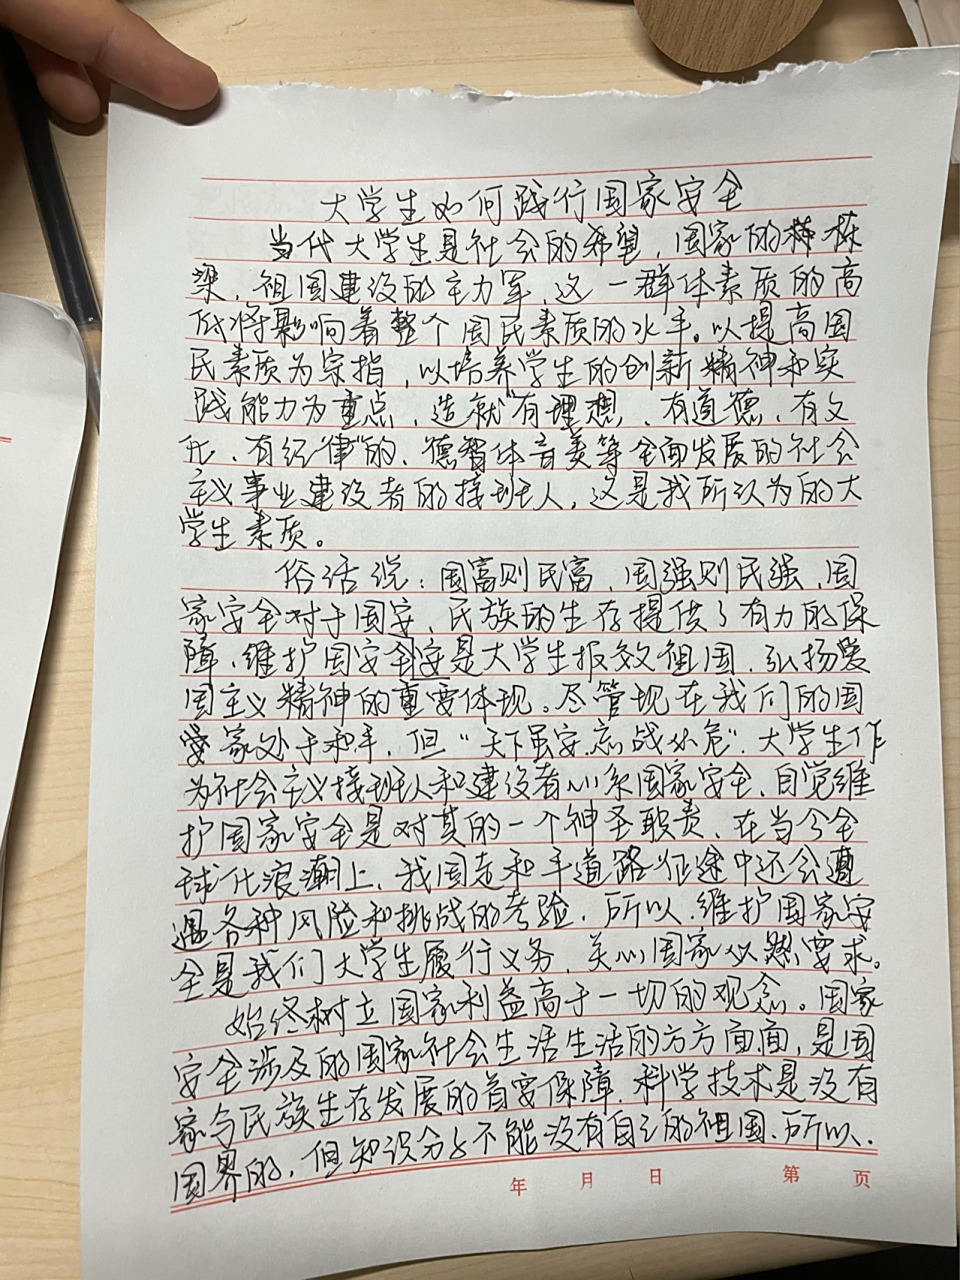 大学生如何践行国家安全
当代大学生是社会的希望，国家的栋
梁，祖国建设的主力军，这一群体素质的高
低将影响着整个国民素质的水平。以提高国
民素质为宗指，以培养学生的创新精神和实
践能力为重点，造就"有理想、有道德、有文
化、有纪律"的、德智体音美等全面发展的社会
主义事业建设者的接班人，这是我所认为的大
学生素质。
俗话说：国富则民富，国强则民强，国
家安全对于国安、民族的生存提供了有力的保
障，维护国安全安是大学生报效祖国，弘扬爱
国主义精神的重要体现。尽管现在我们的国
家处于和平，但"天下虽安，忘战必危"，大学生作
为社会主义接班人和建设者心系国家安全，自觉维
护国家安全是对其的一个神圣职责，在当今全
球化浪潮上，我国走和平道路征途中还会遭
遇各种风险和挑战的考验，所以，维护国家安
全是我们大学生履行义务，关心国家必然要求。
始终树立国家利益高于一切的观念。国家
安全涉及的国家社会生活生活的方方面面，是国
家与民族生存发展的首要保障，科学技术是没有
国界的，但知识分子不能没有自己的祖国，所以，
年 月 日 第 页